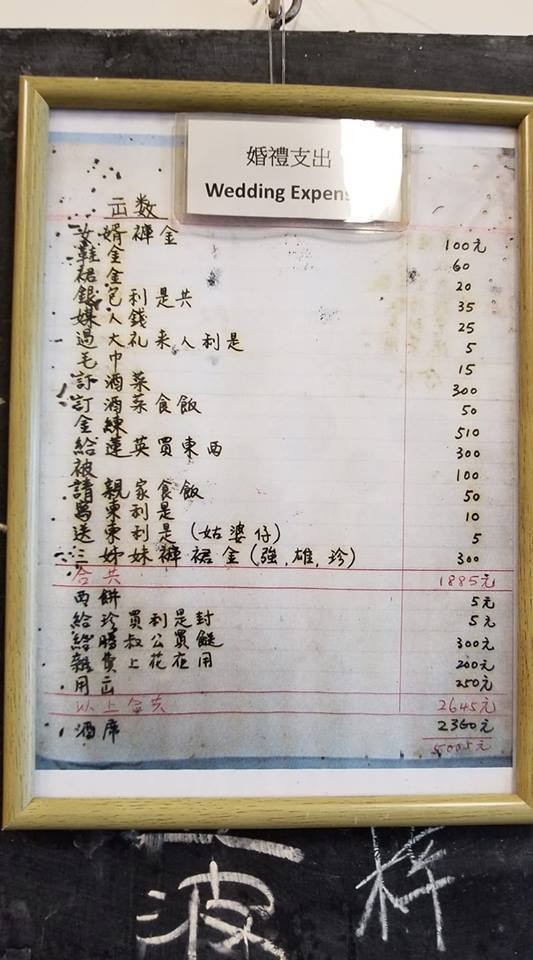 婚禮支出
Wedding Expens
出数
女婿褲金 100元
鞋金 60
裙金 20
銀包利是共 35
媒人錢 25
過大礼来人利是 5
毛巾 15
訂酒菜 300
訂酒菜食飯 50
金練 510
給蓮英買東西 300
被 100
請親家食飯 50
東利是 10
送東利是(姑婆仔) 5
三姊妹褲裙金(強,雄,珍) 300
合共 1885元
西餅 5元
給珍買利是封 5元
給勝叔公買餸 300元
雜費上花在用 200元
用出 250元
以上合共 2645元
酒席 2360元
5005元
波